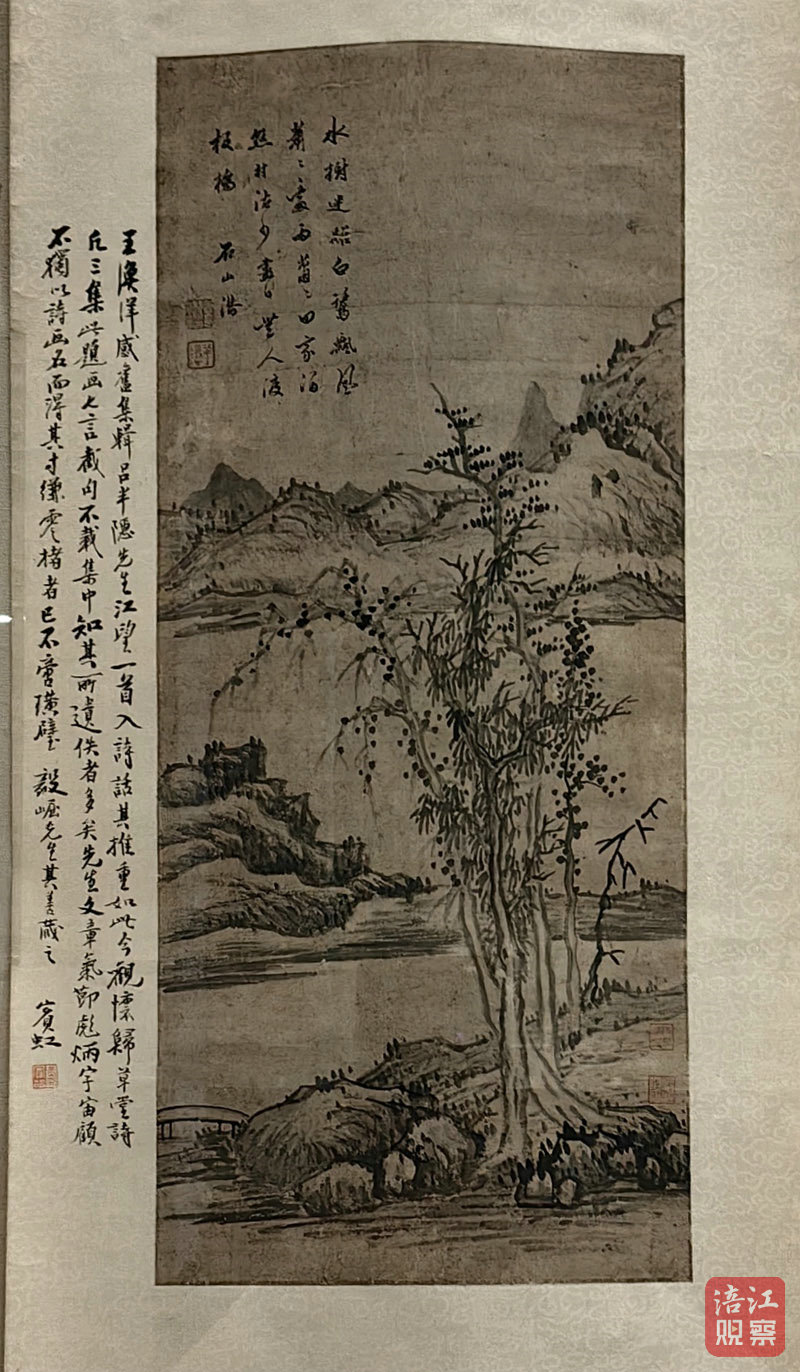 水榭迷離白鷺飄風
蕭〻處雨蕭〻田家酒
熟村沽少盡日無人渡
板橋 石山潛
王漁洋感舊集輯呂半隱先生江望一首入詩話其推重如此今觀懷歸草堂詩
凡三集此題画七言截句不載集中知其所遺佚者多矣先生文章氣節彪炳宇宙顧
不獨以詩画名而得其寸縑零楮者已不啻璜璧 毅崛先生其善藏之 賓虹
涪江
观察